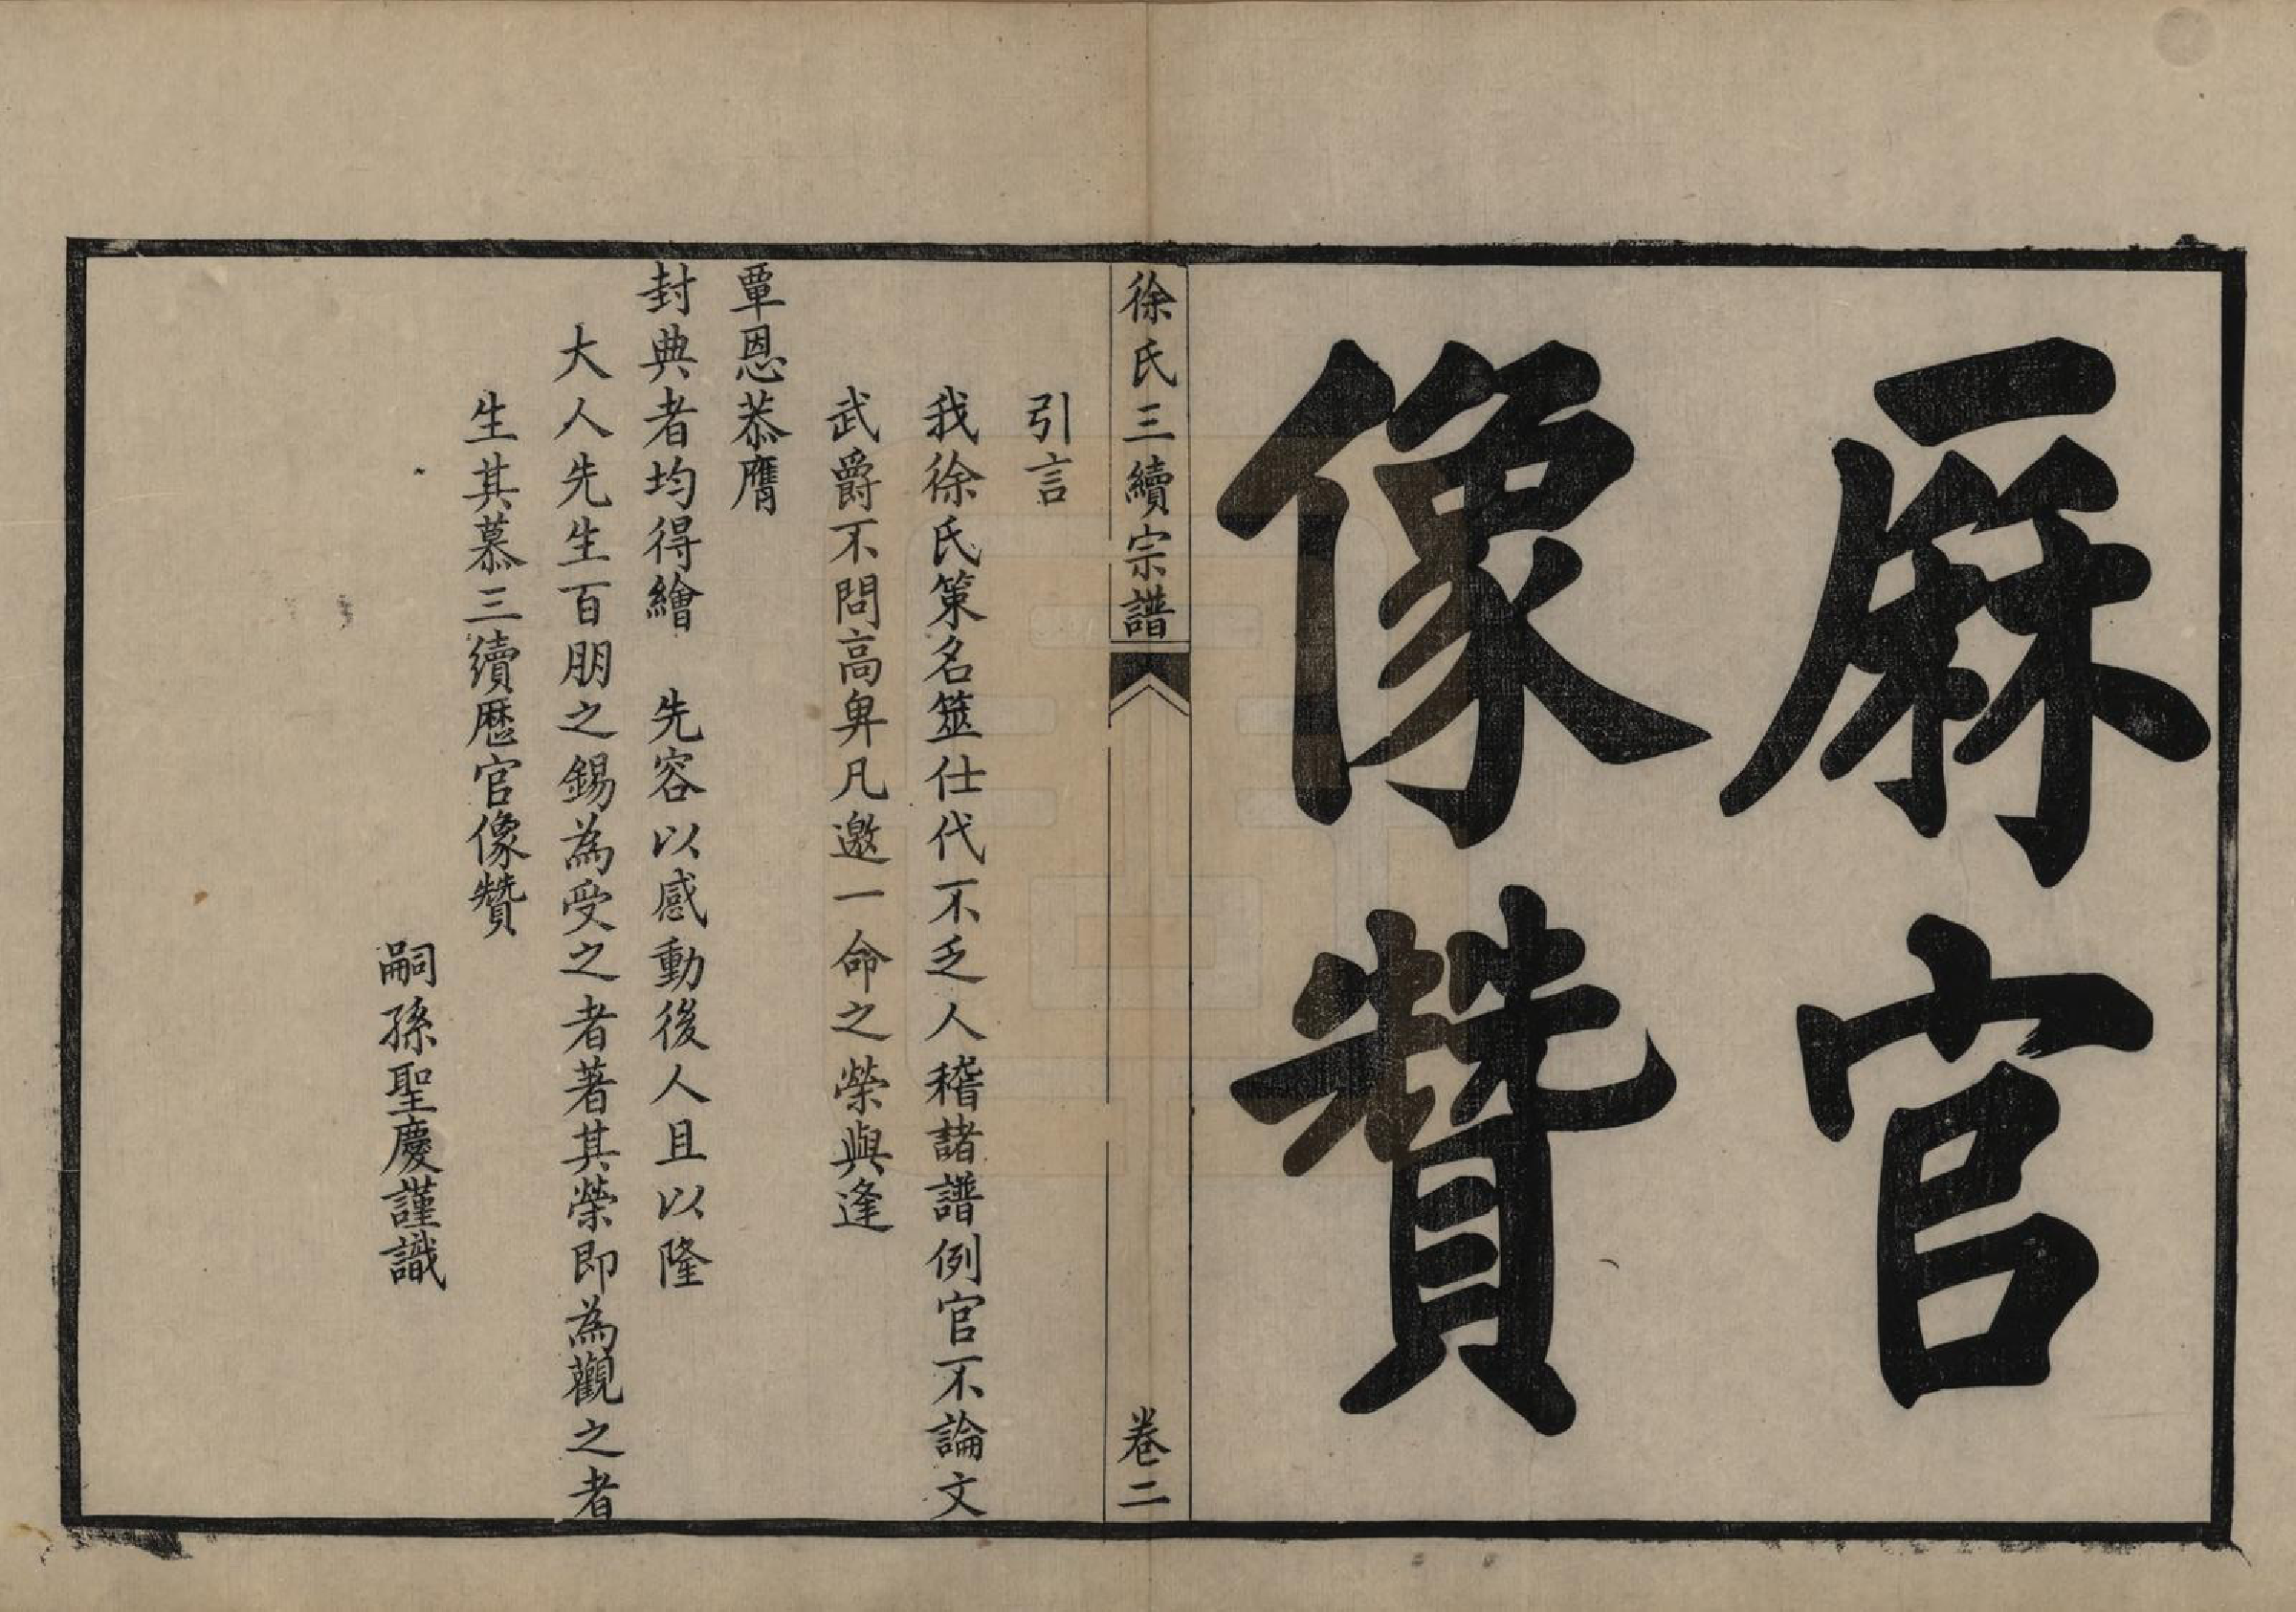 厤官
像贊
徐氏三續宗譜
卷二
引言
我徐氏策名筮仕代不乏人稽諸譜例官不論文
武爵不問高卑凡邀一命之榮與逢
覃恩恭膺
封典者均得繪　先容以感動後人且以隆
大人先生百朋之錫為受之者著其榮即為觀之者
生其慕三續歷官像贊
嗣孫聖慶謹識